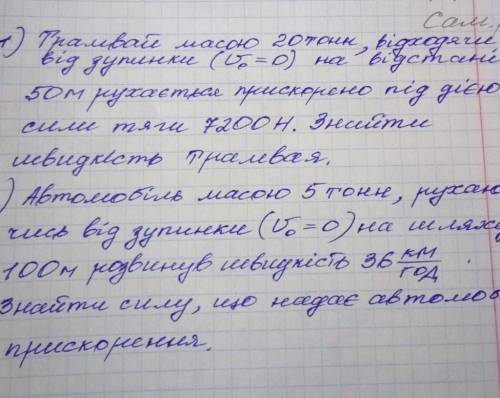 Сам.
1) Трамвай масою 20 тонн, відходячи
від зупинки (υ₀=0) на відстані
50м рухається прискорено під дією
сили тяги 7200Н. Знайти
швидкість трамвая.
) Автомобіль масою 5 тонн, рухаю
чись від зупинки (υ₀=0) на шляху
100м розвинув швидкість 36 км/год.
Знайти силу, що надає автомоб
прискорення.